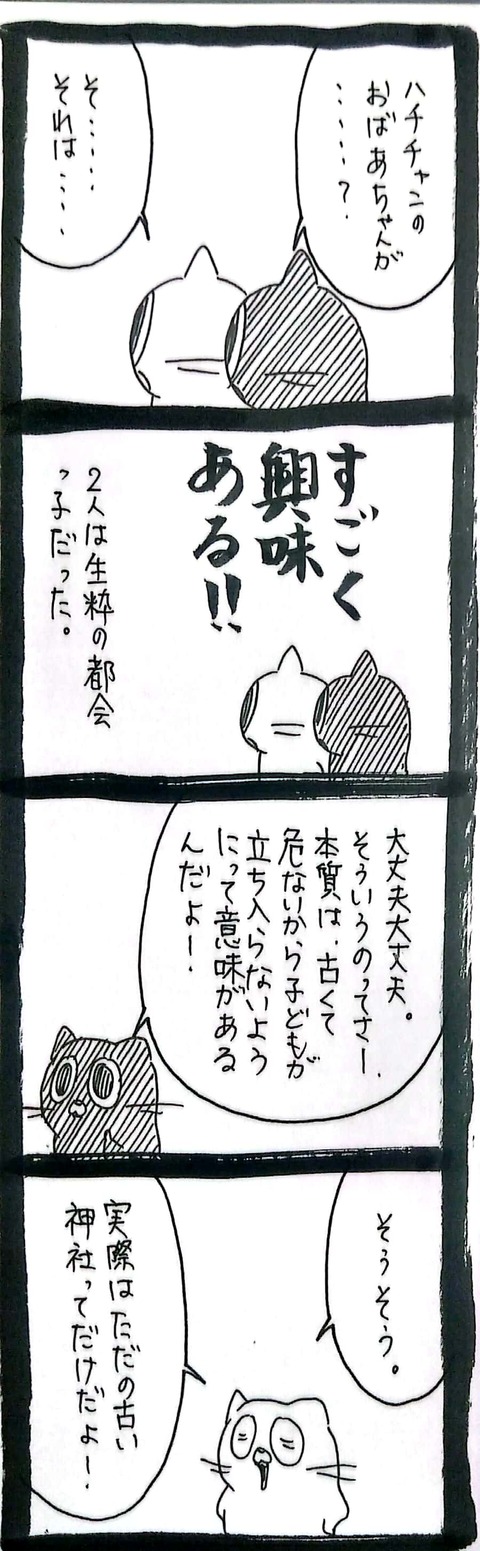 ハチチャンの
おばあちゃんが
……？
そ……
それは……
すごく
興味
ある!!
2人は生粋の都会
っ子だった。
大丈夫大丈夫。
そういうのってさー、
本質は、古くて
危ないから子どもが
立ち入らないよう
にって意味がある
んだよー！
そうそう。
実際はただの古い
神社ってだけだよー！